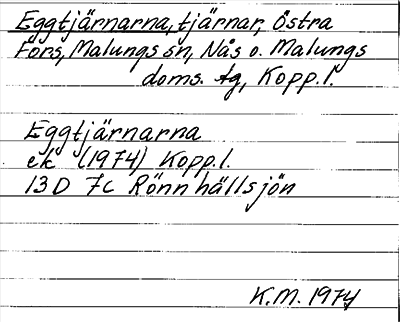 Eggtjärnarna, tjärnar, Östra
Fors, Malungs sn, Nås o. Malungs
doms. tg, Kopp. l.
Eggtjärnarna
ek (1974) Kopp. l.
13D 7c Rönnhällsjön
K.M. 1974